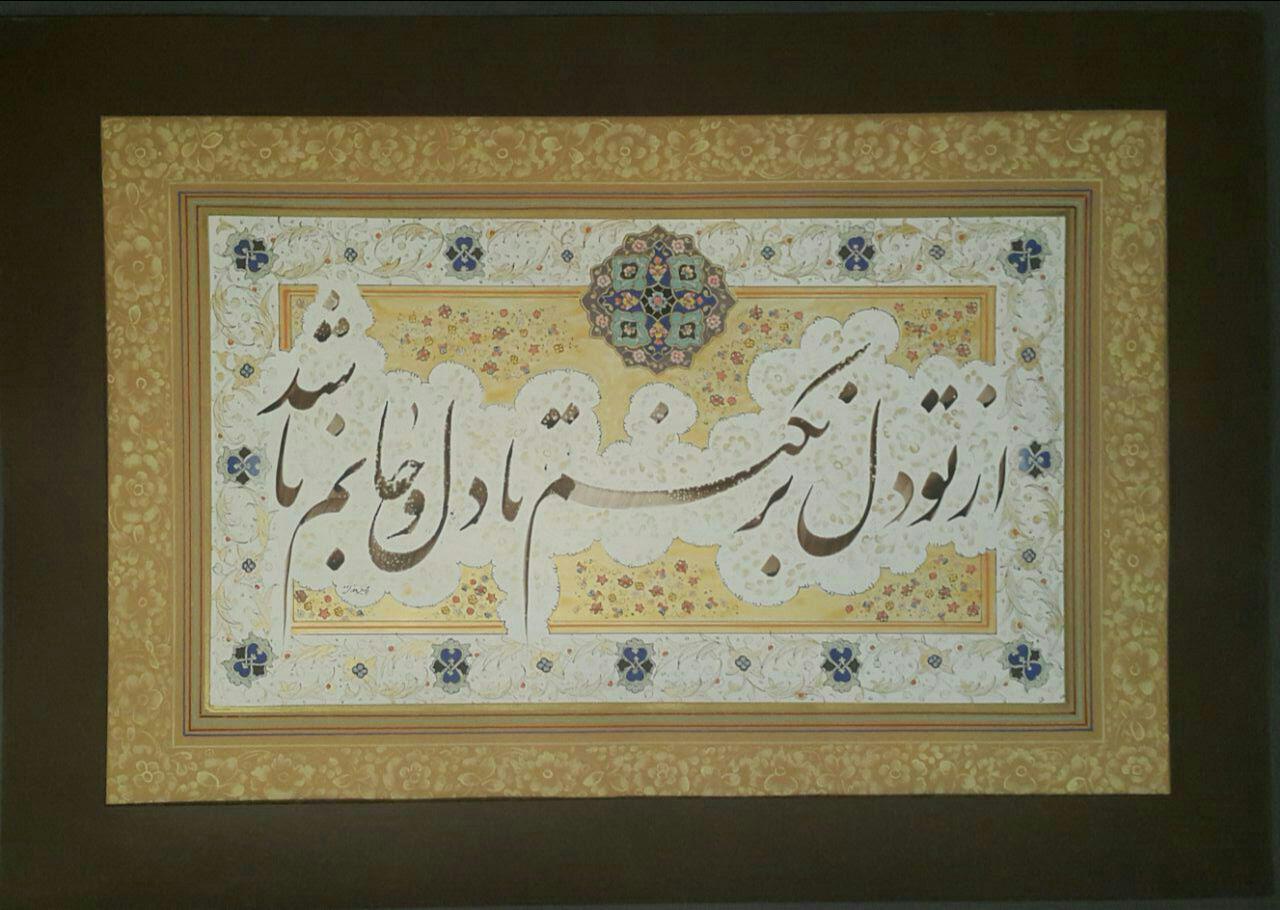 از تو دل برنکنم تا دل و جانم باشد